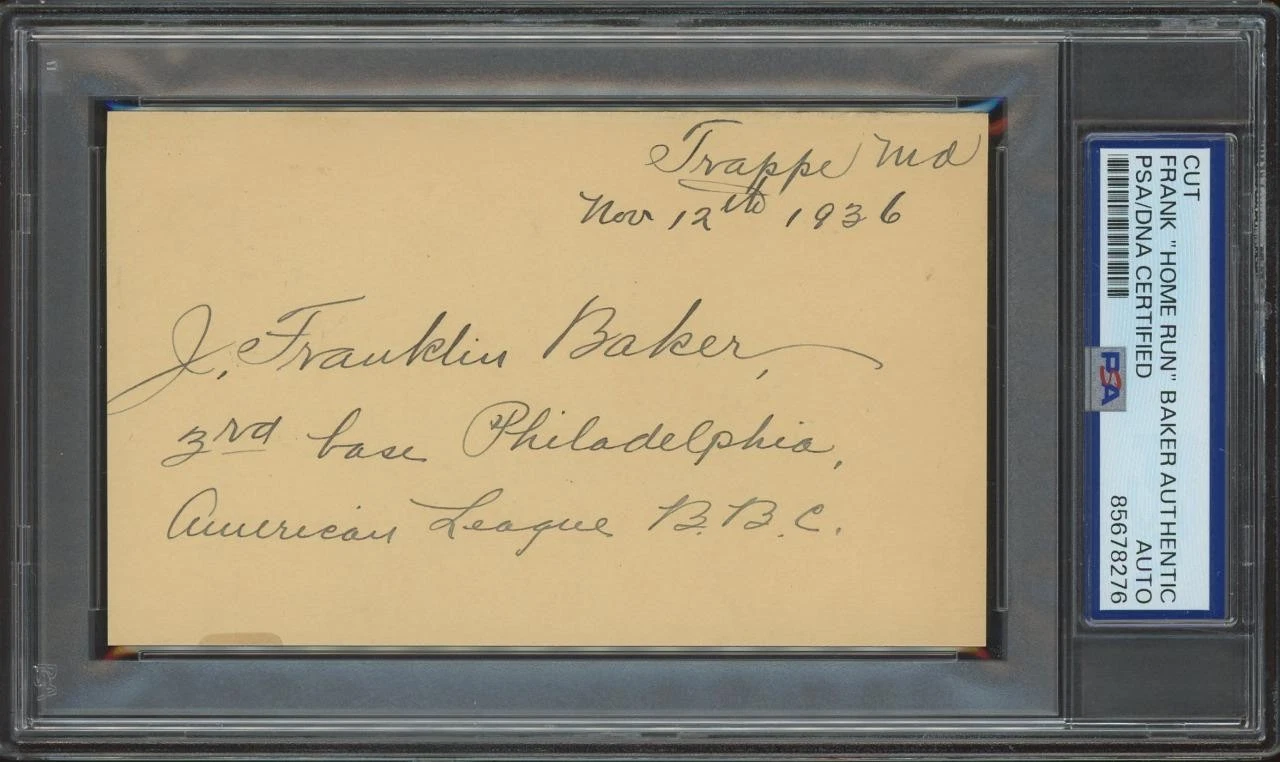 Trappe Md
Nov 12th 1936
J. Franklin Baker,
3rd base Philadelphia,
American League B.B.C.
CUT
FRANK "HOME RUN" BAKER AUTHENTIC
PSA/DNA CERTIFIED AUTO
85678276
PSA